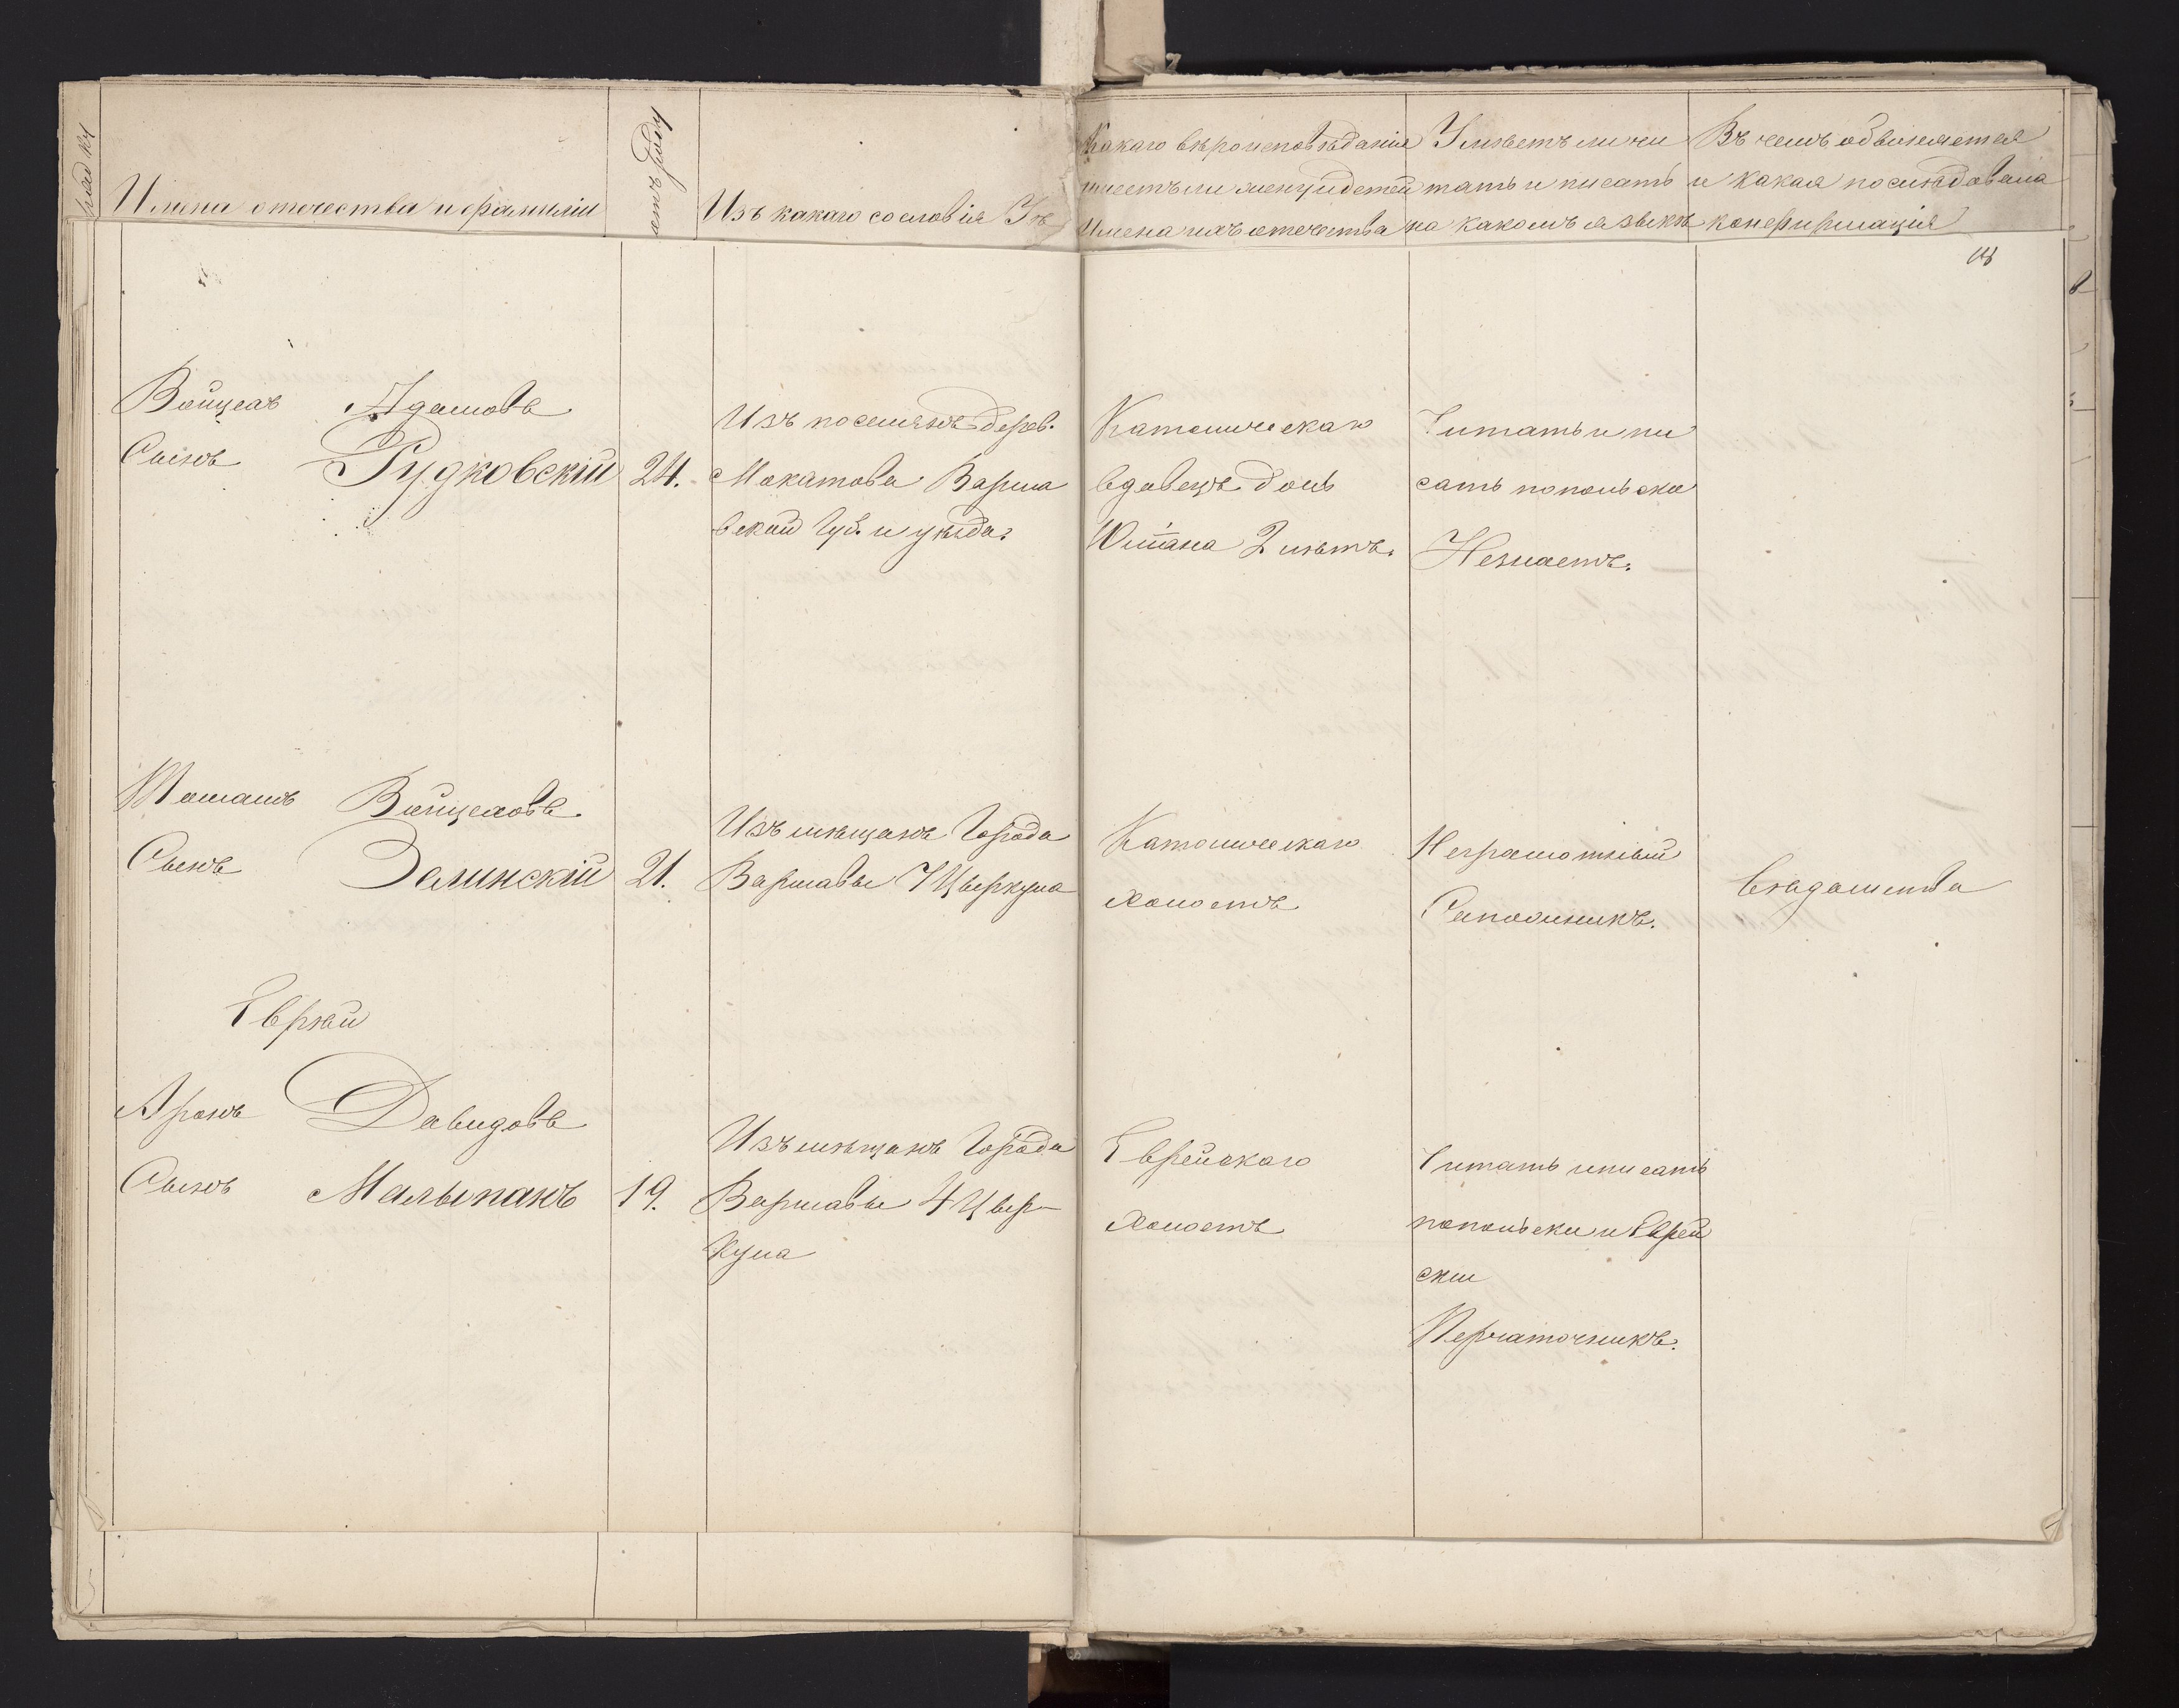 Имена отечества и фамиліи
Изъ какаго сословія
Какаго вѣроисповѣданія
имеетъ ли жену и детей
Имена ихъ отечества
Умѣетъ ли чи
тать и писать
на какомъ языкѣ
Въ чемъ обвиняется
и какая последовала
конфирмація
Войцехъ Адамовъ
Сынъ Рудковскій
24.
Изъ поселянъ дерев.
Мокатова Варша
вской Губ. и уѣзда.
Католическаго
вдовецъ дочь
Юліана 2 лѣтъ.
Читать и пи
сать попольски
Незнаетъ.
Томашъ Войцеховъ
Сынъ Залинскій
21.
Изъ мѣщанъ Города
Варшавы 7 Цыркула
Католическаго
холостъ
Неграмотный
Сапожникъ.
Еврѣи
Аронъ Давидовъ
Сынъ Малыпакъ
19.
Изъ мѣщанъ Города
Варшавы 4 Цыр-
кула
Еврейскаго
холостъ
Читать и писать
попольски и Еврей
ски
Перчаточникъ.